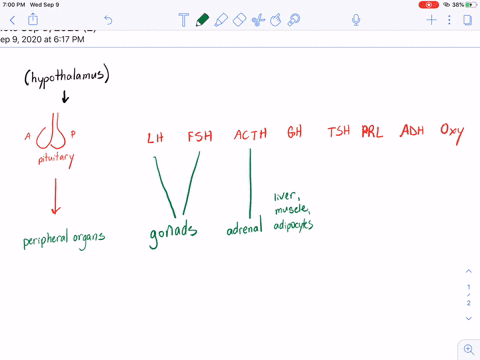 7:00 PM Wed Sep 9
38%
ep 9, 2020 at 6:17 PM
(hypothalamus)
A P
pituitary
LH FSH ACTH GH TSH PRL ADH Oxy
peripheral organs
gonads
adrenal
liver,
muscle,
adipocytes
1
/
2